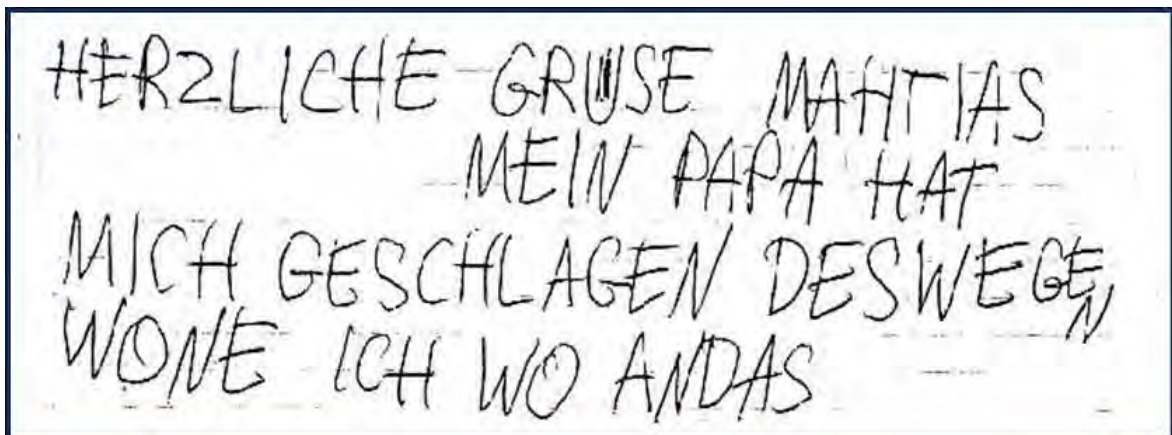 HERZLICHE GRUSE MAHTIAS
MEIN PAPA HAT
MICH GESCHLAGEN DESWEGEN
WONE ICH WO ANDAS